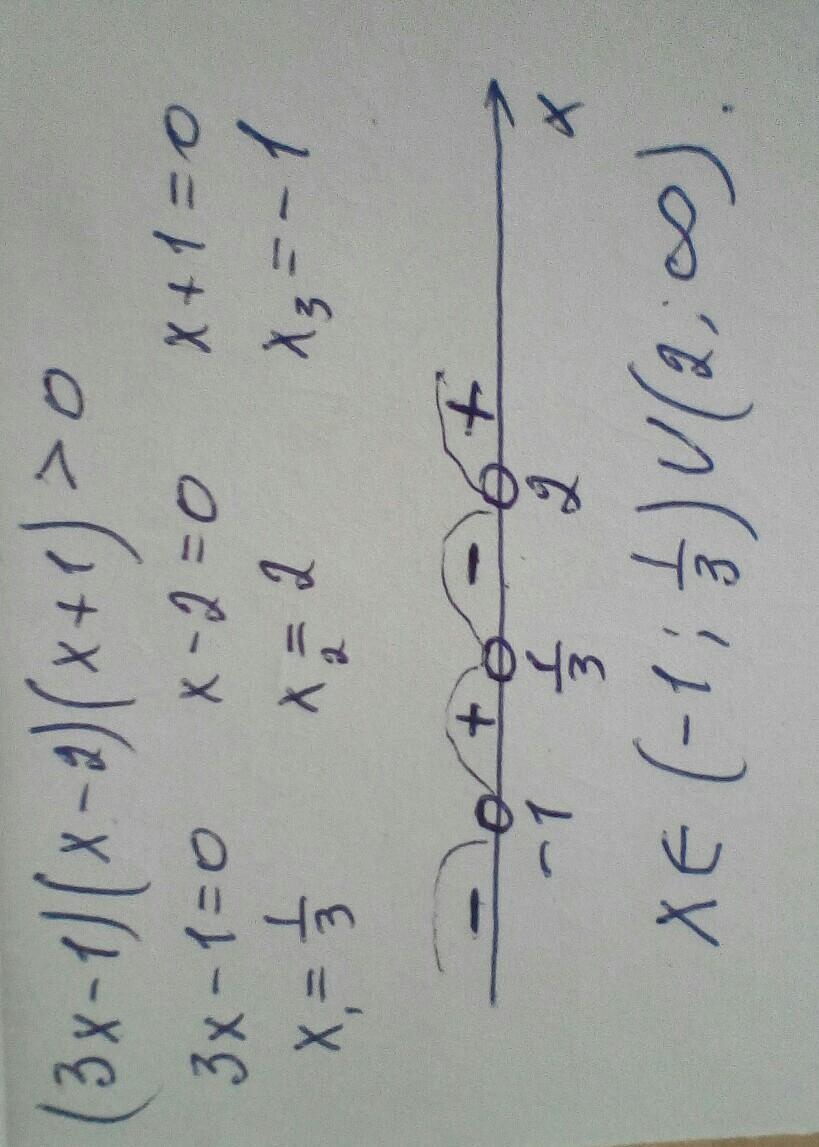 (3x-1)(x-2)(x+1)>0
3x-1=0 x-2=0 x+1=0
x₁=1/3 x₂=2 x₃=-1
- + - +
-1 1/3 2 x
x∈(-1; 1/3)∪(2; ∞).